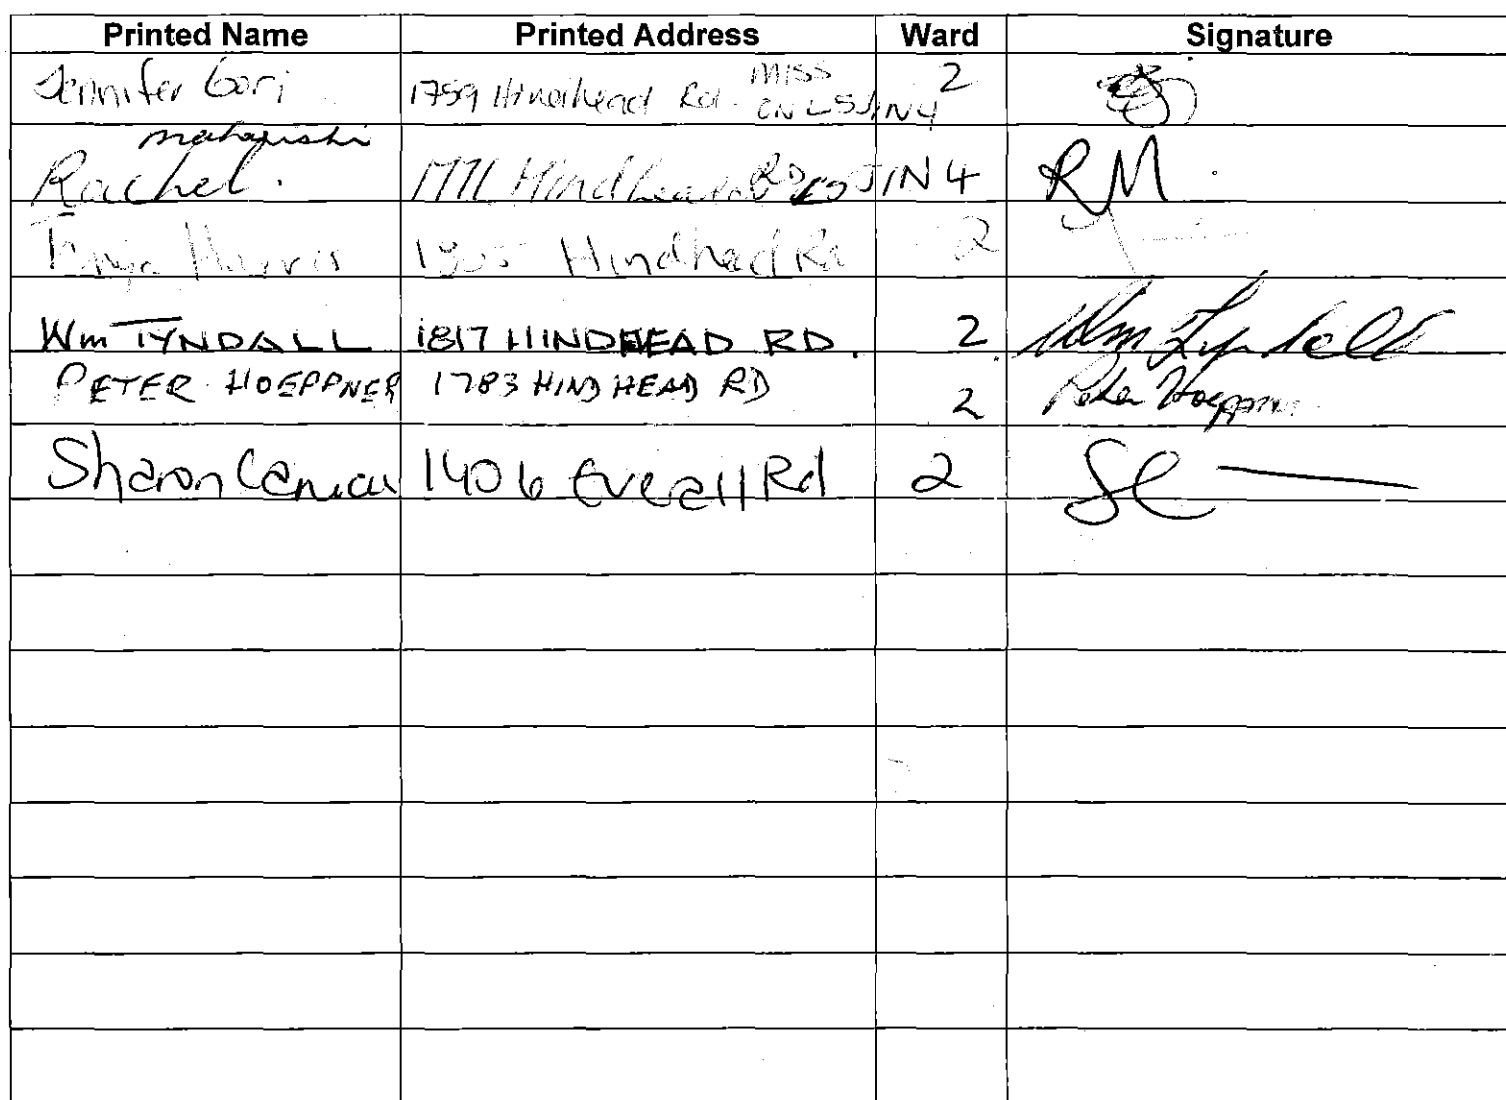 Printed Name Printed Address Ward Signature
Jennifer Gori 1759 Hindhead Rd. MISS 2
ON L5J1N4
maharishi
Rachel. Hindhead Rd L5J1N4 RM.
Tanya Harris Hindhead Rd 2
Wm TYNDALL 1817 HINDHEAD RD. 2 Wm Tyndall
PETER HOEPPNER 1783 HINDHEAD RD 2 Peter Hoeppner
Sharon 1406 Everall Rd 2 SC